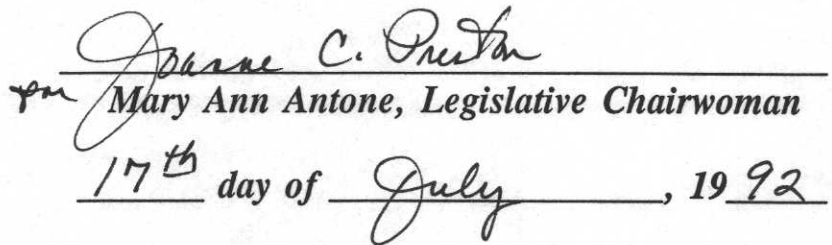 Joanne C. Preston
for Mary Ann Antone, Legislative Chairwoman
17th day of July, 19 92